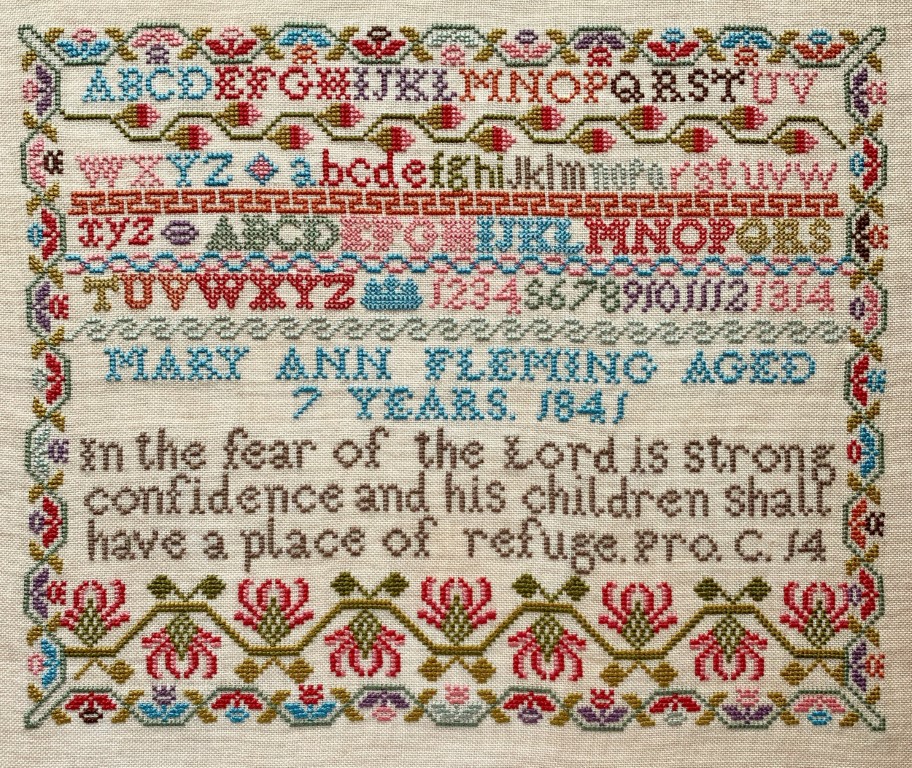 ABCDEFGHIJKLMNOPQRSTUV
WXYZabcdefghiJklmnopqrstuvw
xyzABCDEFGHIJKLMNOPQRS
TUVWXYZ 1234567891011121314
MARY ANN FLEMING AGED
7 YEARS. 1841
In the fear of the Lord is strong
confidence and his children shall
have a place of refuge. Pro. C. 14